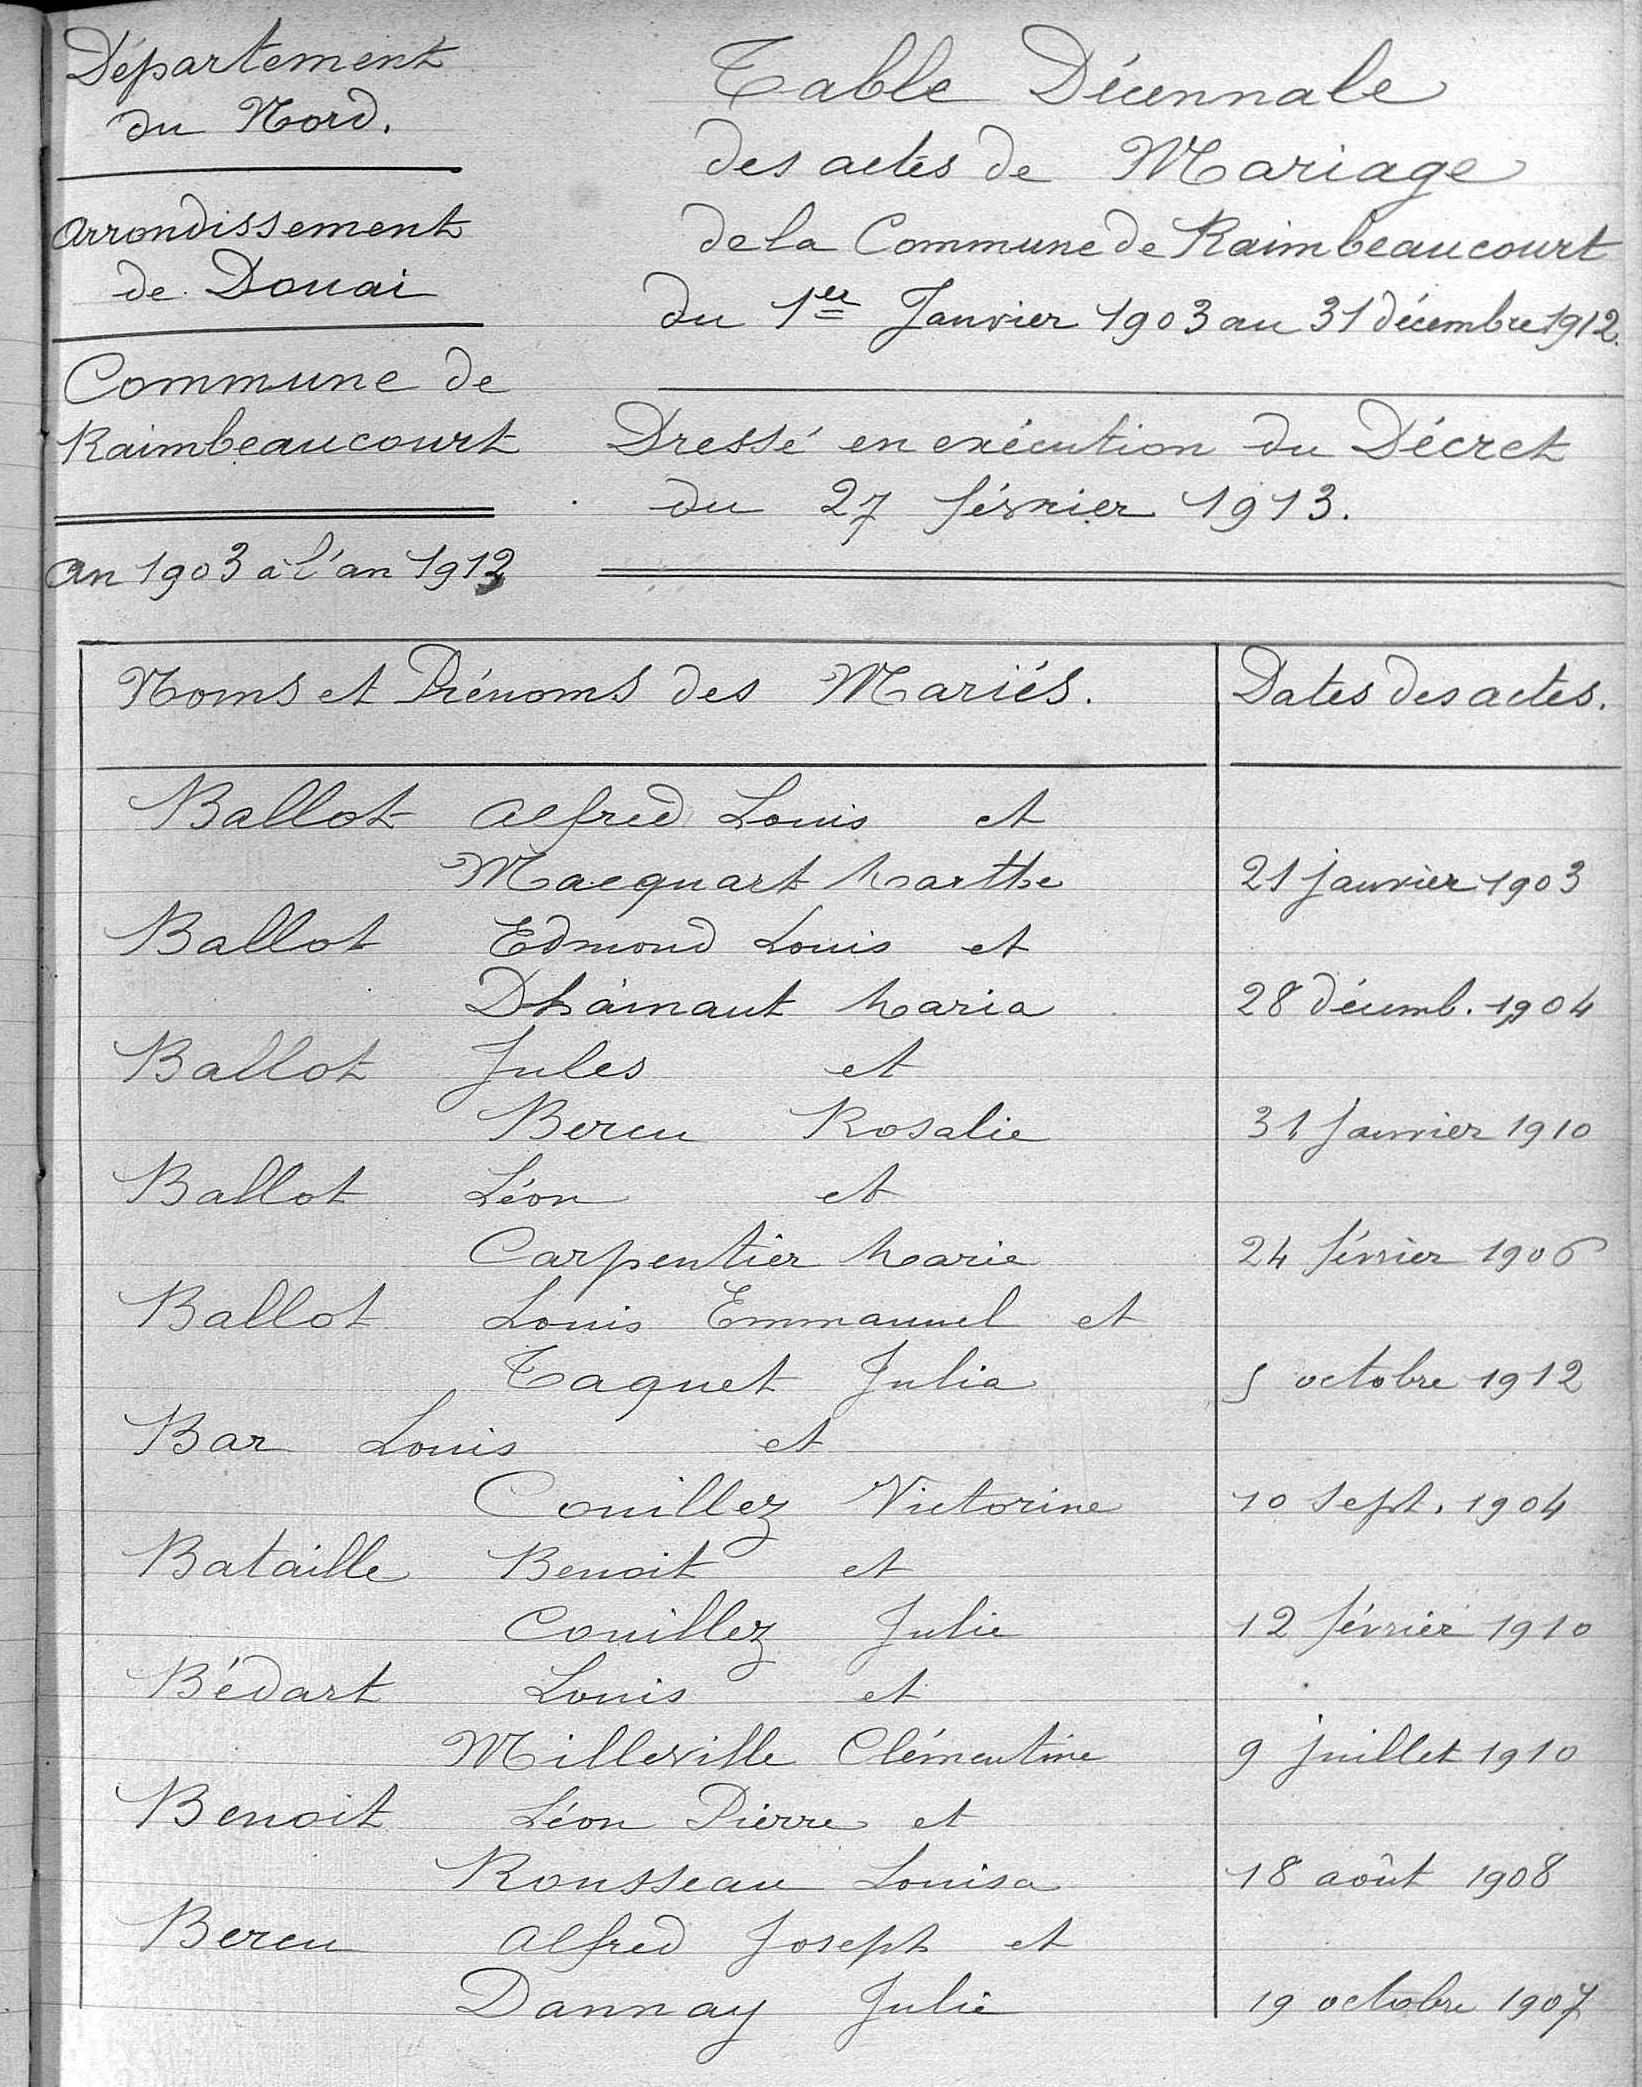 Département
du Nord.
Arrondissement
de Douai
Commune de
Raimbeaucourt
an 1903 à l'an 1912
Table Décennale
des actes de Mariage
de la Commune de Raimbeaucourt
du 1er Janvier 1903 au 31 décembre 1912.
Dressé en exécution du Décret
du 27 février 1913.
Noms et Prénoms des Mariés. Dates des actes.
Ballot Alfred Louis et
Macquart Marthe 21 janvier 1903
Ballot Edmond Louis et
Dhainaut Maria 28 décemb. 1904
Ballot Jules et
Bercu Rosalie 31 Janvier 1910
Ballot Léon et
Carpentier Marie 24 février 1906
Ballot Louis Emmanuel et
Taquet Julia 5 octobre 1912
Bar Louis et
Couillez Victorine 10 sept. 1904
Bataille Benoit et
Couillez Julie 12 février 1910
Bédart Louis et
Milleville Clémentine 9 juillet 1910
Benoit Léon Pierre et
Rousseau Louisa 18 août 1908
Bercu Alfred Joseph et
Dannay Julie 19 octobre 1907